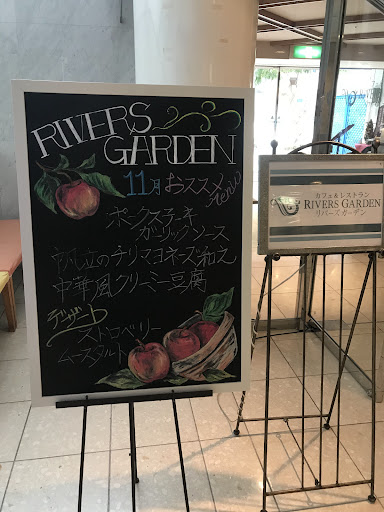 RIVERS
GARDEN
11月 おススメ Menu
ポークステーキ
ガーリックソース
帆立のチリマヨネーズ和え
中華風クリーミー豆腐
デザート
ストロベリー
ムースタルト
カフェ&レストラン
RIVERS GARDEN
リバーズガーデン